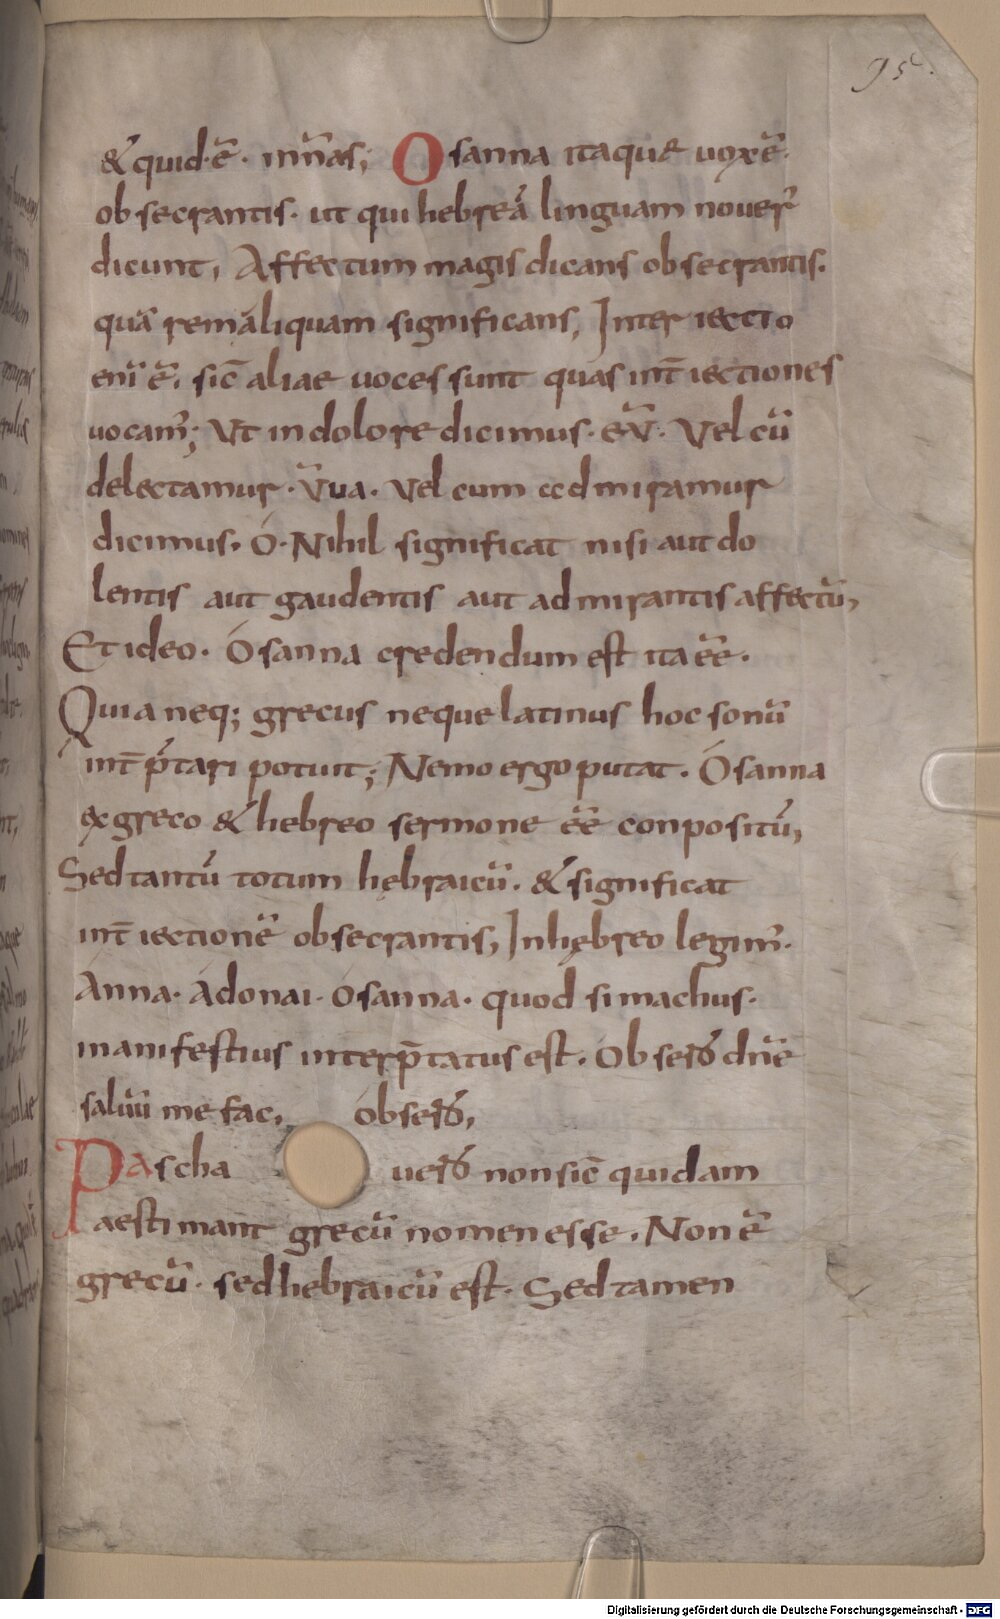 95.
& quid·ē· inn̄as; Osanna itaque uoxē·
obsecrantis· ut qui hebreā linguam nouer̄
dicunt, Affectum magis dicans obsecrantis·
quā rem aliquam significans, Inter iectio
eni ē, sic̄ aliae uoces sunt quas int̄iectiones
uocam̄; Ut in dolore dicimus· eū· Vel cū
delectamur· Vua· Vel cum admiramur
dicimus· Ó· Nihil significat nisi aut do
lentis aut gaudentis aut admirantis affectū,
Et ideo· Ósanna credendum est ita ēē·
Quia neq; grecus neque latinus hoc sonū
int̄p̄tari potuit; Nemo ergo putat· Ósanna
ex greco & hebreo sermone ēē conpositū,
Sed tantū totum hębraicū· & significat
int̄iectionē obsecrantis, In hębreo legim̄·
Ánna· Ádonai· ósanna· quod simachus·
manifestius interp̄tatus est· Obser̄o dn̄e
saluū me fac, óbser̄o,
Pascha uer̄o non sic̄ quidam
aestimant grecū nomen esse· Non ē
grecū· sed hebraicū est· Sed tamen
Digitalisierung gefördert durch die Deutsche Forschungsgemeinschaft - DFG